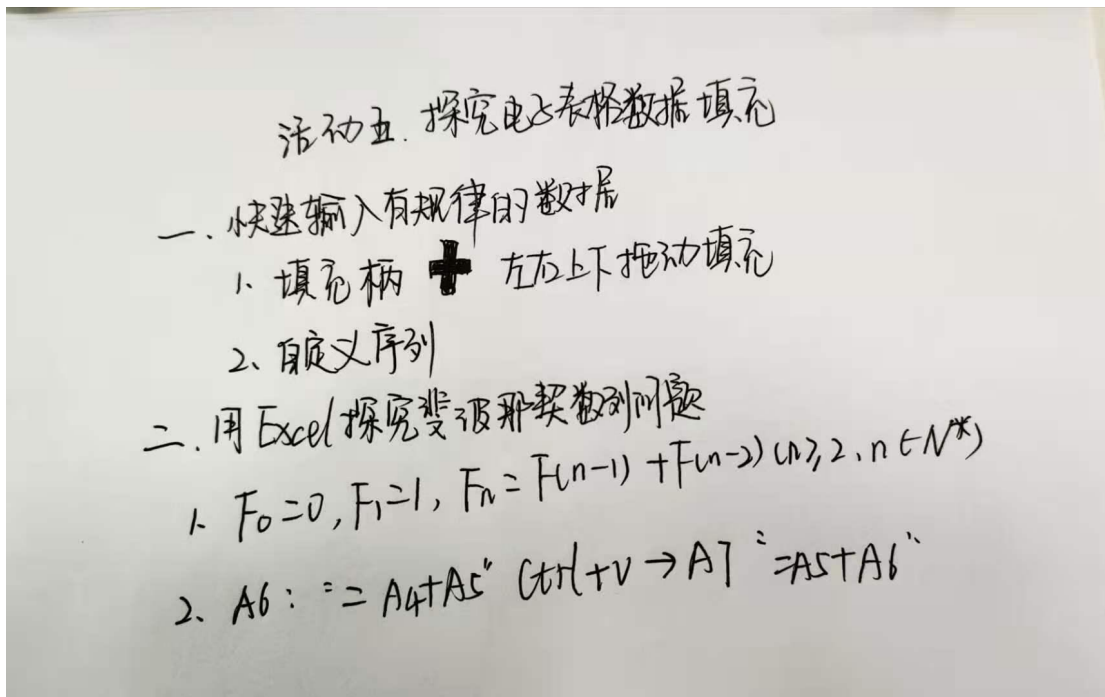 活动五.探究电子表格数据填充
一、快速输入有规律的数据
1、填充柄 ✚ 左右上下拖动填充
2、自定义序列
二、用Excel探究斐波那契数列问题
1、F₀=0,F₁=1,Fn=F(n-1)+F(n-2)(n≥2,n∈N*)
2、A6:"=A4+A5" Ctrl+V→A7"=A5+A6"